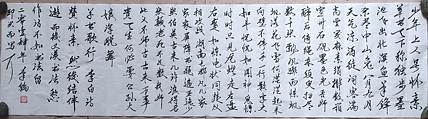 少年上人号怀素
草书天下称独步墨
池飞出北溟鱼笔锋
杀尽中山兔八月九月
天气凉酒徒词客满
高堂笺麻素绢排数箱
宣州石砚墨色光吾师
醉后倚绳床须臾扫尽
数千张飘风骤雨惊飒
飒落花飞雪何茫茫起来
向壁不停手一行数字大
如斗怳怳如闻神鬼惊
时时只见龙蛇走左盘
右蹙如惊电状同楚汉相
攻战湖南七郡凡几家家
家屏障书题遍王逸少张
伯英古来几许浪得名
张颠老死不足数我师
此义不师古古来万事
贵天生何必要公孙大
娘浑脱舞
草书歌行 李白诗